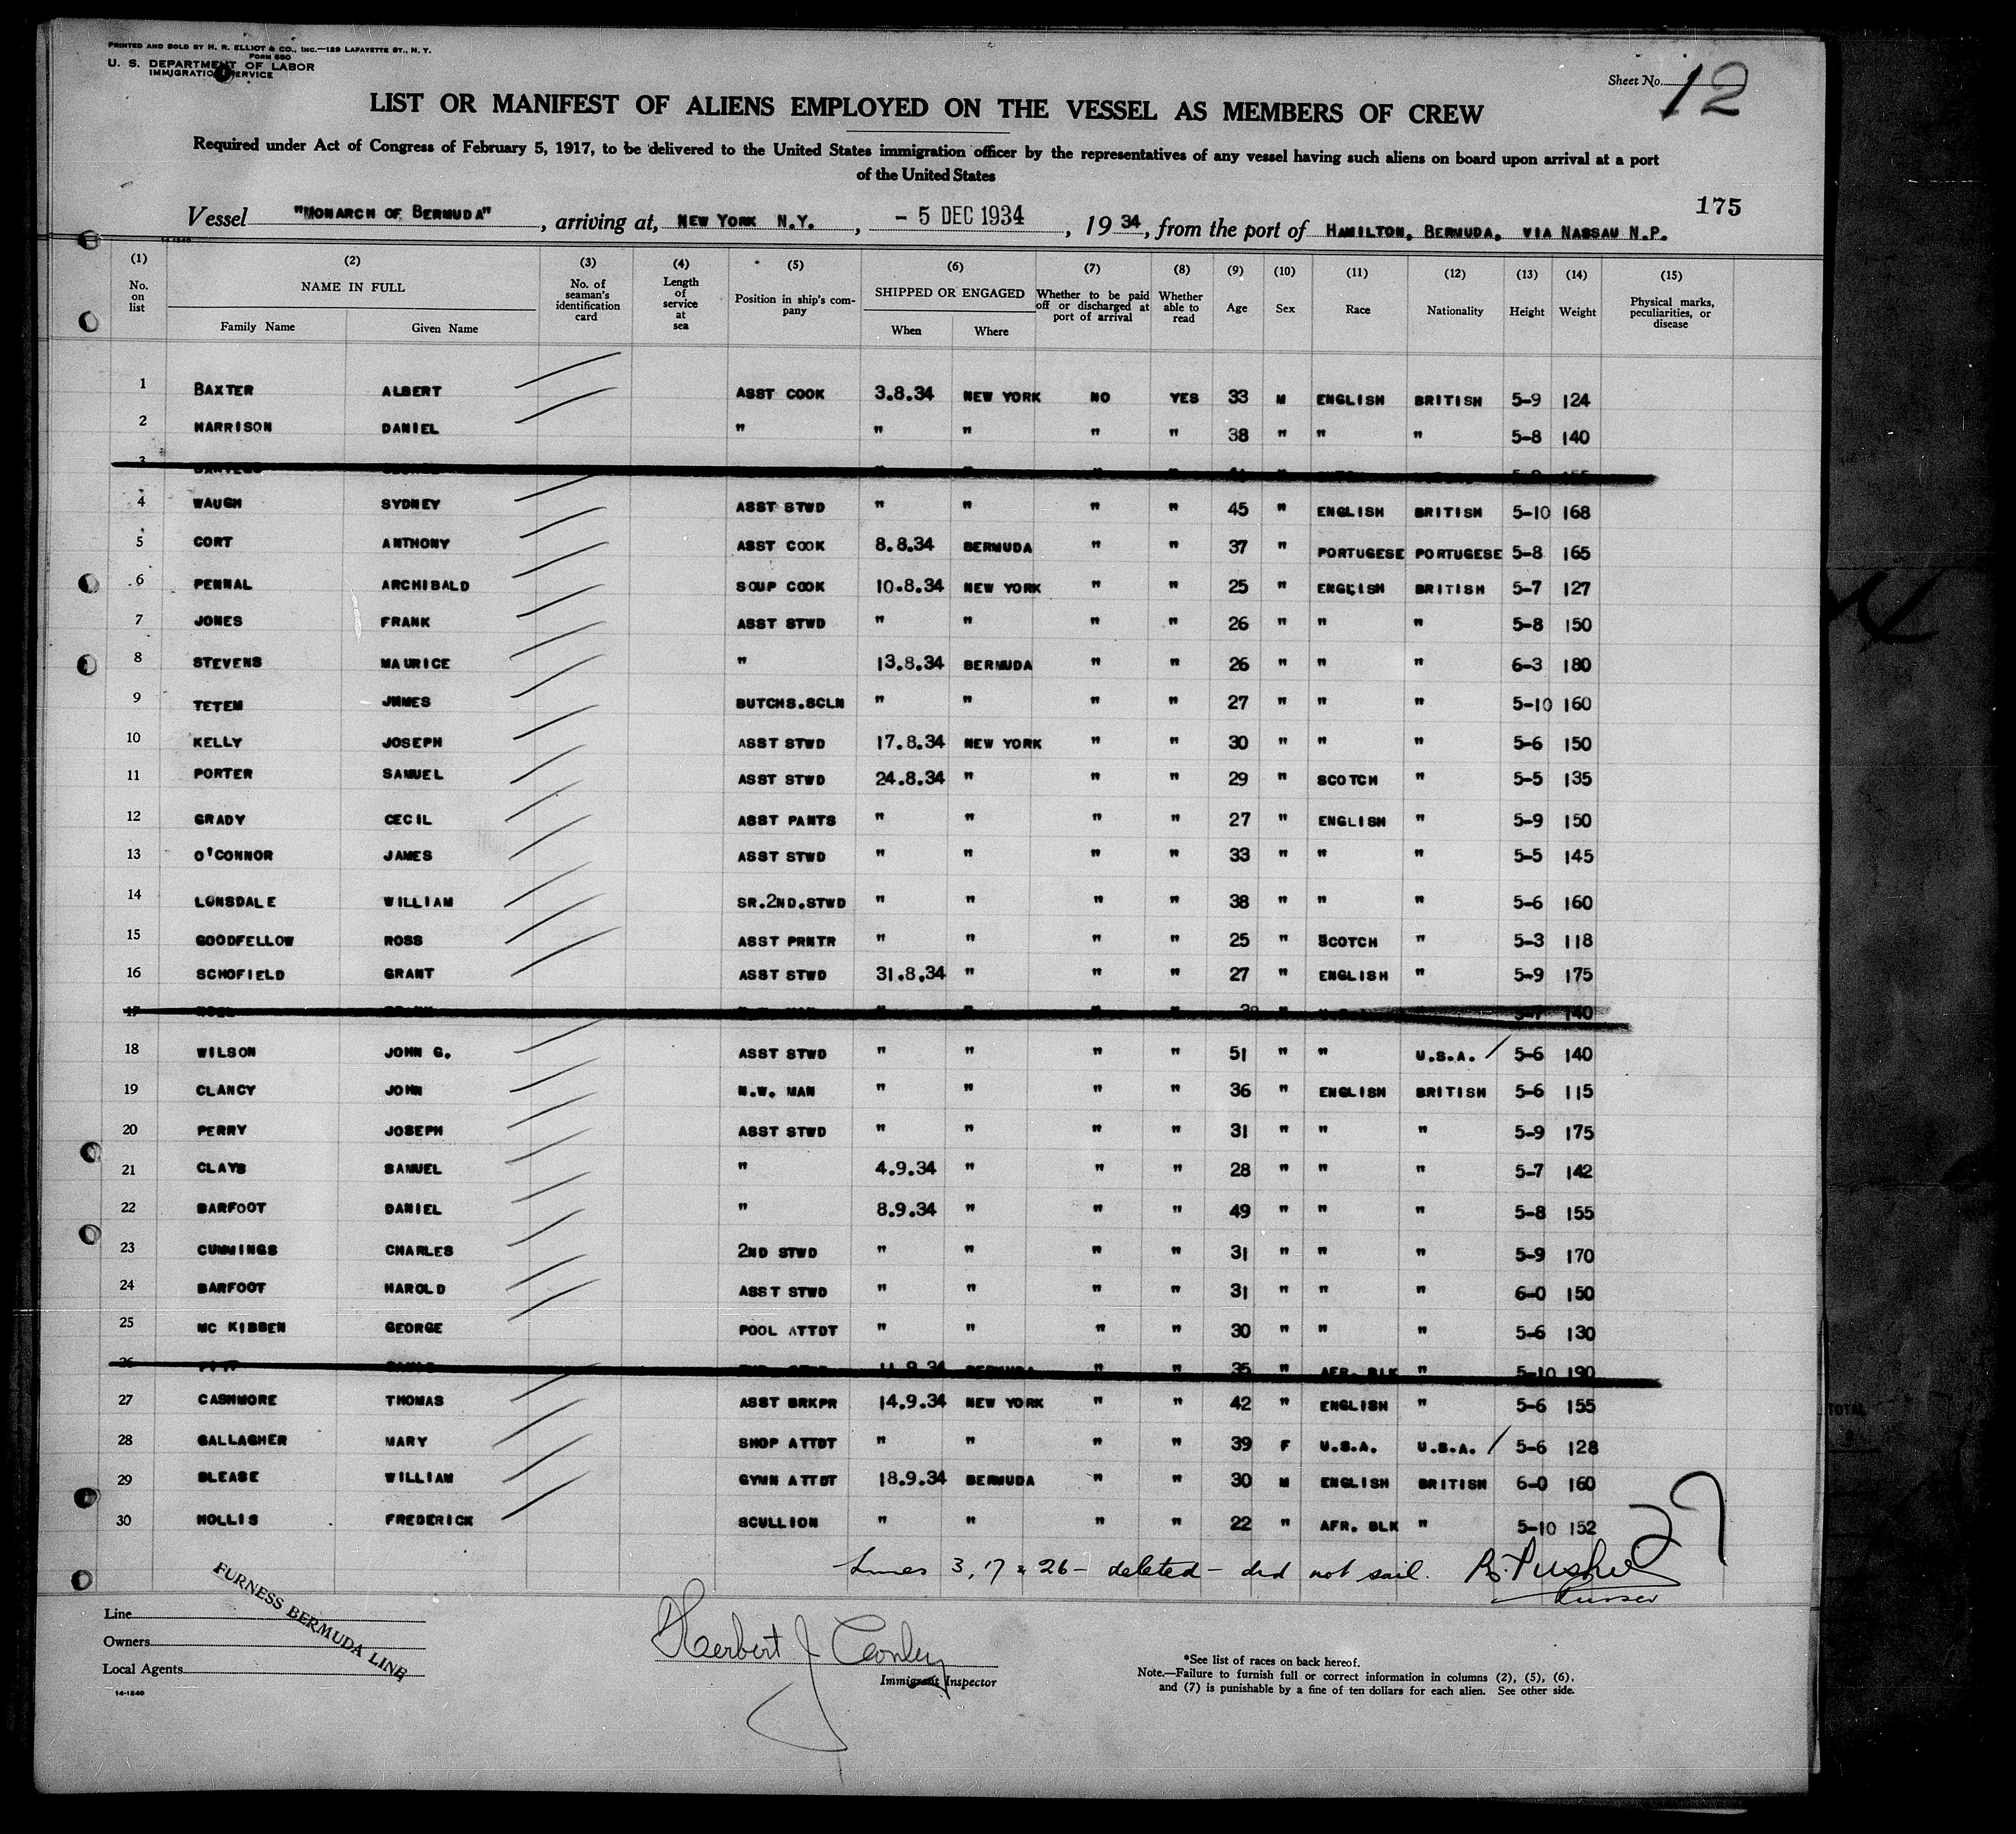 PRINTED AND SOLD BY H. R. ELLIOT & CO., INC.—129 LAFAYETTE ST., N. Y.
FORM 680
U. S. DEPARTMENT OF LABOR
IMMIGRATION SERVICE
Sheet No. 12
LIST OR MANIFEST OF ALIENS EMPLOYED ON THE VESSEL AS MEMBERS OF CREW
Required under Act of Congress of February 5, 1917, to be delivered to the United States immigration officer by the representatives of any vessel having such aliens on board upon arrival at a port
of the United States
175
Vessel "MONARCH OF BERMUDA", arriving at, NEW YORK N.Y., - 5 DEC 1934, 19 34, from the port of HAMILTON, BERMUDA, VIA NASSAU N.P.
14-1240
(1) (2) (3) (4) (5) (6) (7) (8) (9) (10) (11) (12) (13) (14) (15)
No. on list NAME IN FULL No. of seaman's identification card Length of service at sea Position in ship's company SHIPPED OR ENGAGED Whether to be paid off or discharged at port of arrival Whether able to read Age Sex Race Nationality Height Weight Physical marks, peculiarities, or disease
Family Name Given Name When Where
1 BAXTER ALBERT ASST COOK 3.8.34 NEW YORK NO YES 33 M ENGLISH BRITISH 5-9 124
2 HARRISON DANIEL " " " " " 38 " " " 5-8 140
3
4 WAUGH SYDNEY ASST STWD " " " " 45 " ENGLISH BRITISH 5-10 168
5 CORT ANTHONY ASST COOK 8.8.34 BERMUDA " " 37 " PORTUGESE PORTUGESE 5-8 165
6 PENNAL ARCHIBALD SOUP COOK 10.8.34 NEW YORK " " 25 " ENGLISH BRITISH 5-7 127
7 JONES FRANK ASST STWD " " " " 26 " " " 5-8 150
8 STEVENS MAURICE " 13.8.34 BERMUDA " " 26 " " " 6-3 180
9 TETEM JMMES BUTCHS.SCLN " " " " 27 " " " 5-10 160
10 KELLY JOSEPH ASST STWD 17.8.34 NEW YORK " " 30 " " " 5-6 150
11 PORTER SAMUEL ASST STWD 24.8.34 " " " 29 " SCOTCH " 5-5 135
12 GRADY CECIL ASST PANTS " " " " 27 " ENGLISH " 5-9 150
13 O'CONNOR JAMES ASST STWD " " " " 33 " " " 5-5 145
14 LONSDALE WILLIAM SR.2ND.STWD " " " " 38 " " " 5-6 160
15 GOODFELLOW ROSS ASST PRNTR " " " " 25 " SCOTCH " 5-3 118
16 SCHOFIELD GRANT ASST STWD 31.8.34 " " " 27 " ENGLISH " 5-9 175
17 140
18 WILSON JOHN G. ASST STWD " " " " 51 " " U.S.A. 5-6 140
19 CLANCY JOHN N.W. MAN " " " " 36 " ENGLISH BRITISH 5-6 115
20 PERRY JOSEPH ASST STWD " " " " 31 " " " 5-9 175
21 CLAYS SAMUEL " 4.9.34 " " " 28 " " " 5-7 142
22 BARFOOT DANIEL " 8.9.34 " " " 49 " " " 5-8 155
23 CUMMINGS CHARLES 2ND STWD " " " " 31 " " " 5-9 170
24 BARFOOT HAROLD ASST STWD " " " " 31 " " " 6-0 150
25 MC KIBBEN GEORGE POOL ATTDT " " " " 30 " " " 5-6 130
26 11.9.34 BERMUDA " " 35 " AFR. BLK " 5-10 190
27 CASHMORE THOMAS ASST BRKPR 14.9.34 NEW YORK " " 42 " ENGLISH " 5-6 155
28 GALLAGHER MARY SHOP ATTDT " " " " 39 F U.S.A. U.S.A. 5-6 128
29 BLEASE WILLIAM GYMN ATTDT 18.9.34 BERMUDA " " 30 M ENGLISH BRITISH 6-0 160
30 HOLLIS FREDERICK SCULLION " " " " 22 " AFR. BLK " 5-10 152
27
Lines 3, 17 & 26 - deleted - did not sail.
Purser
Line
Owners
Local Agents
FURNESS BERMUDA LINE
14-1240
Herbert J Conley
Immigrant Inspector
*See list of races on back hereof.
Note.—Failure to furnish full or correct information in columns (2), (5), (6),
and (7) is punishable by a fine of ten dollars for each alien. See other side.
TOTAL